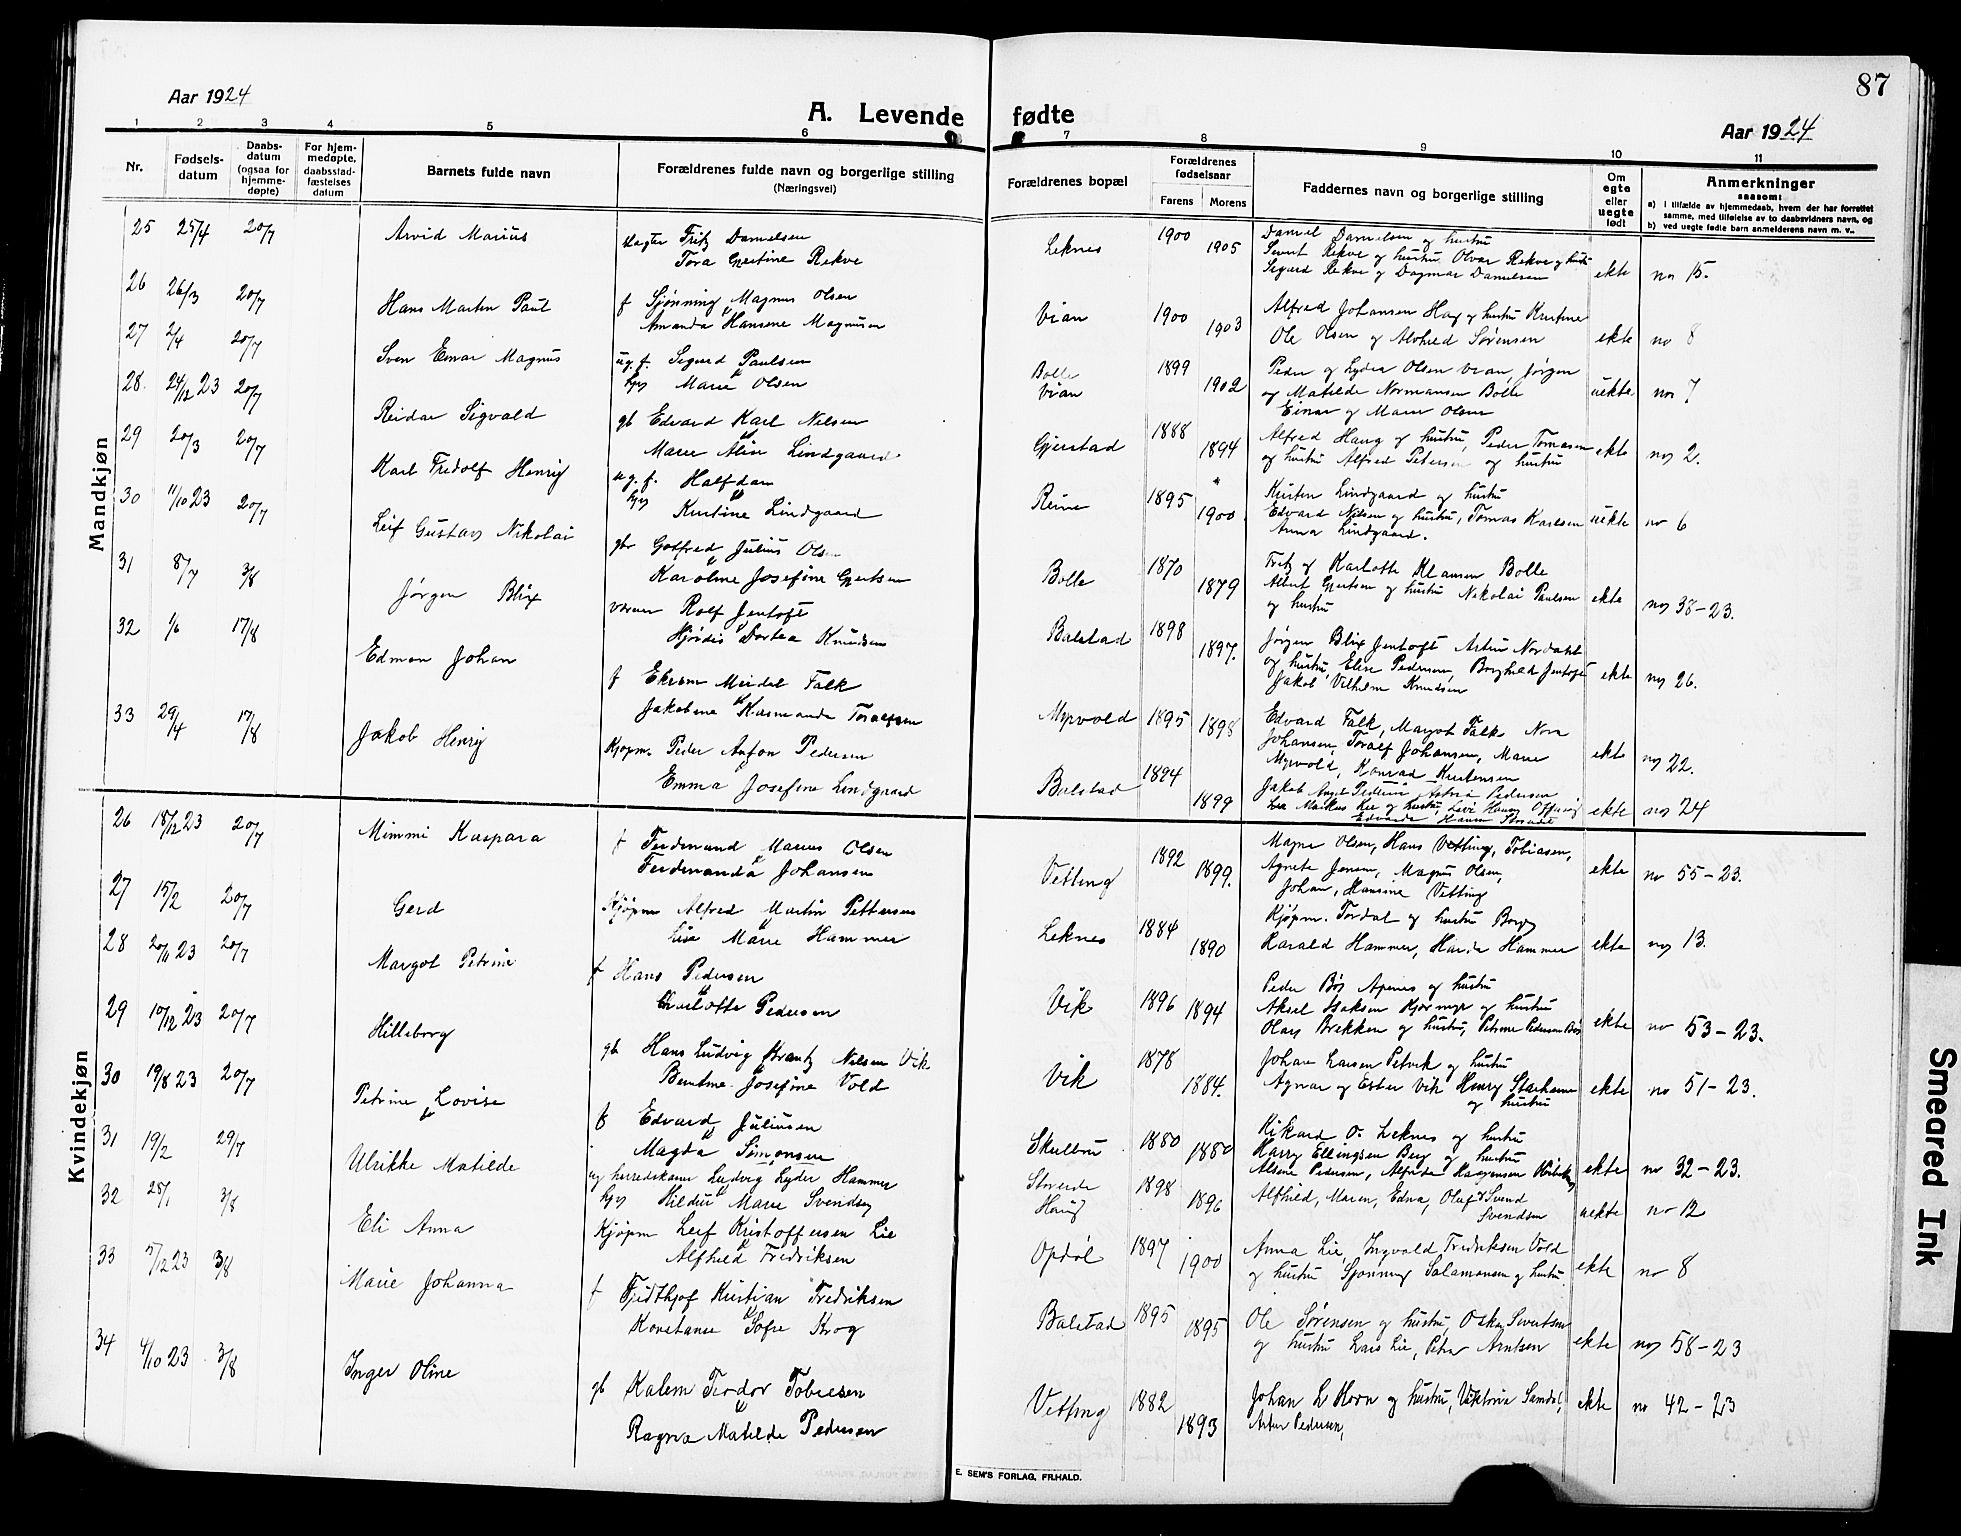 87
Aar 1924
A. Levende fødte
Aar 1924
1 2 3 4 5 6 7 8 9 10 11
Nr.
Fødsels-
datum
Daabs-
datum
(ogsaa for
hjemme-
døpte)
For hjem-
medøpte,
daabsstad-
fæstelses
datum
Barnets fulde navn
Forældrenes fulde navn og borgerlige stilling
(Næringsvei)
Forældrenes bopæl
Forældrenes
fødselsaar
Farens Morens
Faddernes navn og borgerlige stilling
Om
egte
eller
uegte
født
Anmerkninger
saasom:
a) i tilfælde av hjemmedaab, hvem der har forrettet
samme, med tilføielse av to daabsvidners navn, og
b) ved uegte fødte barn anmelderens navn m. v..
Mandkjøn
25 25/4 20/7 Arvid Marius
Fritz Danielsen
Tora Gjertine Rekve
Leknes 1900 1905
Daniel Danielsen og hustru
Sivert Rekve og hustru Olvar Rekve og hustru
Sigurd Rekve og Dagmar Danielsen
ekte no 15.
26 26/3 20/7 Hans Martin Paul
f Sjønning Magnus Olsen
Amanda Hansine Magnusen
Vian 1900 1903
Alfred Johansen Haug og hustru Kristine
Ole Olsen og Alvhild Sørensen
ekte no 8
27 2/4 20/7 Sven Einar Magnus
ug. f. Sigurd Paulsen
pg Marie Olsen
Bolle
Vian 1899 1902
Peder og Lydia Olsen Vian, Jørgen
og Matilde Normansen Bolle
Einar og Marie Olsen
uekte no 7
28. 24/12 23 20/7 Reidar Sigvald
gb Edvard Karl Nilsen
Marie Aline Lindgaard
Gjerstad 1888 1894
Alfred Haug og hustru, Peder Tomasen
og hustru Alfred Petersen og hustru
ekte no 2.
29 20/3 20/7 Karl Fredolf Henry
ug. f. Halfdan
pg Kristine Lindgaard
Reine 1895 1900
Kristen Lindgaard og hustru
Edvard Nilsen og hustru, Tomas Karlsen
Anna Lindgaard.
uekte no 6
30 11/10 23 20/7 Leif Gustav Nikolai
gbr Gotfred Julius Olsen
Karoline Josefine Gjertsen
Bolle 1870 1879
Fritz og Karlotte Klausen Bolle
Albert Gjertsen og hustru Nikolai Paulsen
og hustru
ekte no 38-23.
31 8/7 3/8 Jørgen Blix
Rolf Jentoft
Hjørdis Dortea Knudsen
Balstad 1898 1897.
Jørgen Blix Jentoft Artur Nordahl
og hustru, Elise Pedersen, Borghild Jentoft
Jakob Vilhelm Knudsen
ekte no 26.
32 1/6 17/8 Edmon Johan
f Ekram Meidel Falk
Jakobine Rasmanda Toralfsen
Myrvold 1895 1898
Edvard Falk, Margot Falk Nora
Johansen, Toralf Johansen, Marie
Myrvold, Konrad Kristensen
ekte no 22.
33 29/4 17/8 Jakob Henry
Kjøpm. Peder Anton Pedersen
Emma Josefine Lindgaard
Balstad 1894 1899
ekte no 24
Kvindekjøn
26 18/12 23 20/7 Mimmi Kaspara
f Ferdinand Marius Olsen
Ferdinanda Johansen
Vetting 1892 1899.
Magna Olsen, Hans Vetting, Tobiasen,
Agnete Jensen, Magnus Olsen,
Johan, Hansine Vetting
ekte no 55-23.
27 15/2 20/7 Gerd
Kjøpm Alfred Martin Pettersen
Lise Marie Hammer
Leknes 1884 1890
Kjøpm. Tordal og hustru Borg
Harald Hammer, Harda Hammer
ekte no 13.
28 20/11 23 20/7 Margot Petrine
f Hans Pedersen
Charlotte Pedersen
Vik 1896 1894
Peder Bøs Apenes og hustru
Aksel Isaksen Kjørmyr og hustru
Olay Brekken og hustru, Petrine Pedersen Bøs
ekte no 53-23.
29 10/12 23 20/7 Hilleborg
gb Hans Ludvig Krantz Nilsen Vik
Bentine Josefine Vold
Vik 1878 1884.
Johan Larsen Petvik og hustru
Agnar og Ester Vik Henry Starheim
og hustru
ekte no 51-23.
30 19/8 23 20/7 Petrine Lovise
f Edvard Juliussen
Magda Simonsen
Skulbru 1880 1880
Rikard O. Leknes og hustru
Harry Ellingsen Berg og hustru
ekte no 32-23.
31 19/2 29/7 Ulrikke Matilde
ug herredskasse Ludvig Lyder Hammer
pg Hildur Marie Svendsen
Storeide
Haug 1898 1896
Alfhild, Maren, Edna, Oluf & Svend
Svendsen
uekte no 12
32 25/1 3/8 Eli Anna
Kjøpm Leif Kristoffersen Lie
Alfhild Fredriksen
Opdøl 1897 1900
Anna Lie, Ingvald Fredriksen Vold
og hustru Sjønning Salamonsen og hustru
ekte no 8
33 5/12 23 3/8 Marie Johanna
f Fridthjof Kristian Fredriksen
Konstanse Sofie Krog
Balstad 1895 1895
Ole Sørensen og hustru, Oskar Sivertsen
og hustru Lars Lie, Peter Arntsen
ekte no 58-23
34 4/10 23 3/8 Inger Oline
gb Kalem Teodor Tobiesen
Ragna Matilde Pedersen
Vetting 1882 1893
Johan L Horn og hustru, Viktoria Samdal,
Artur Pedersen,
ekte no 42-23
E. SEM'S FORLAG, FR.HALD.
Smeared Ink